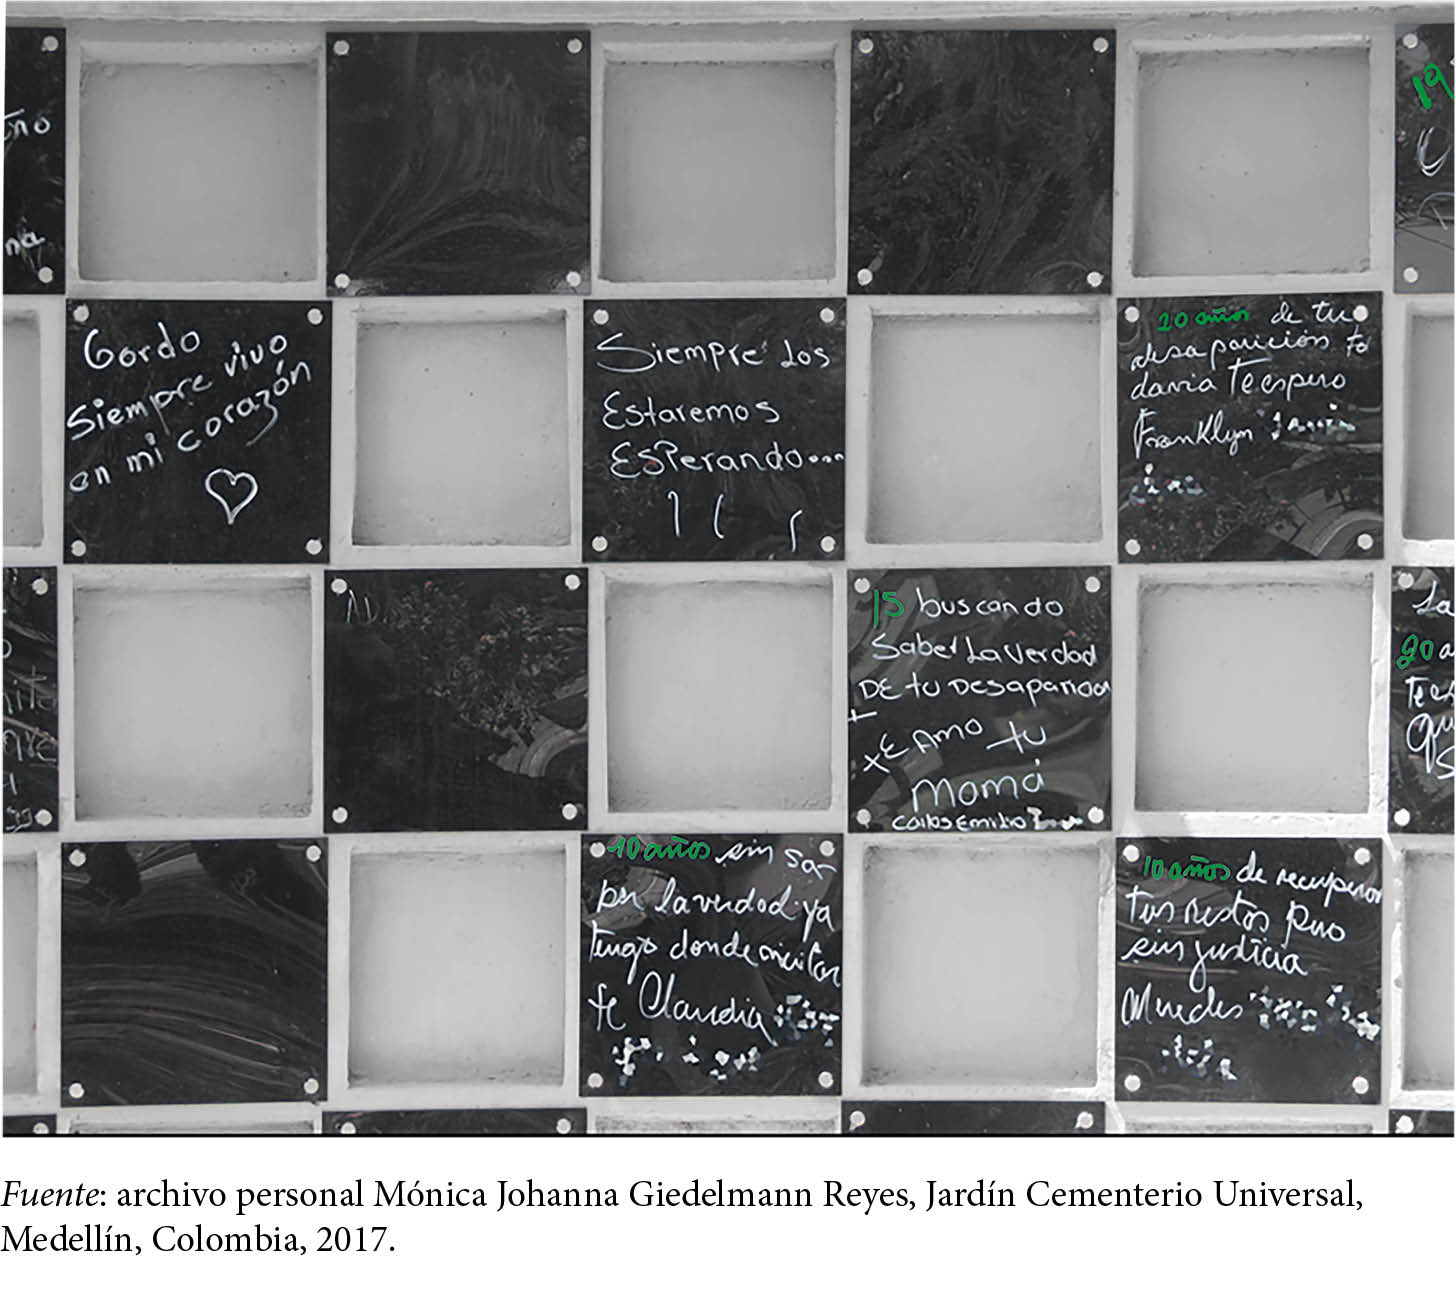 no
na
19
Gordo
Siempre vivo
en mi corazón
Siempre Los
Estaremos
Esperando...
20 años de tu
desaparición to
davia te espero
Franklyn
15 buscando
Saber La Verdad
DE tu Desaparicion
tE Amo tu
Mamá
Carlos Emilio
La
20 a
Te es
qu
S
10 años sin sa
ber la verdad ya
tengo donde visitar
te Claudia
10 años de recuperar
tus restos pero
sin justicia
Mercedes
Fuente: archivo personal Mónica Johanna Giedelmann Reyes, Jardín Cementerio Universal,
Medellín, Colombia, 2017.